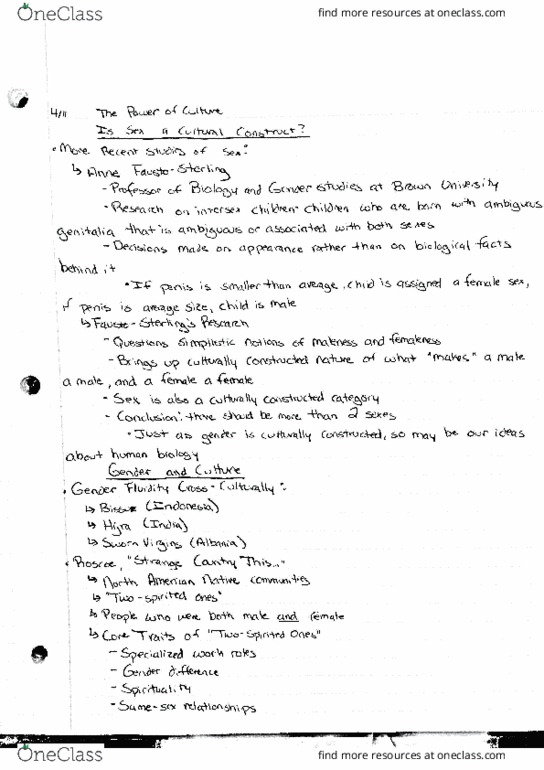 OneClass
find more resources at oneclass.com
4/11 The Power of Culture
Is Sex a Cultural Construct?
• More Recent Studies of "Sex":
↳ Anne Fausto-Sterling
- Professor of Biology and Gender studies at Brown University
- Research on intersex children: children who are born with ambiguous
genitalia that is ambiguous or associated with both sexes
- Decisions made on appearance rather than on biological facts
behind it
• If penis is smaller than average, child is assigned a female sex,
if penis is average size, child is male
↳ Fausto-Sterling's Research
- Questions simplistic notions of maleness and femaleness
- Brings up culturally constructed nature of what "makes" a male
a male, and a female a female
- Sex is also a culturally constructed category
- Conclusion: there should be more than 2 sexes
• Just as gender is culturally constructed, so may be our ideas
about human biology
Gender and Culture
• Gender Fluidity Cross-Culturally:
↳ Bissu (Indonesia)
↳ Hijra (India)
↳ Sworn Virgins (Albania)
• Roscoe, "Strange Country This..."
↳ North American Native communities
↳ "Two-spirited ones"
↳ People who were both male and female
↳ Core Traits of "Two-Spirited Ones"
- Specialized work roles
- Gender difference
- Spirituality
- Same-sex relationships
OneClass
find more resources at oneclass.com